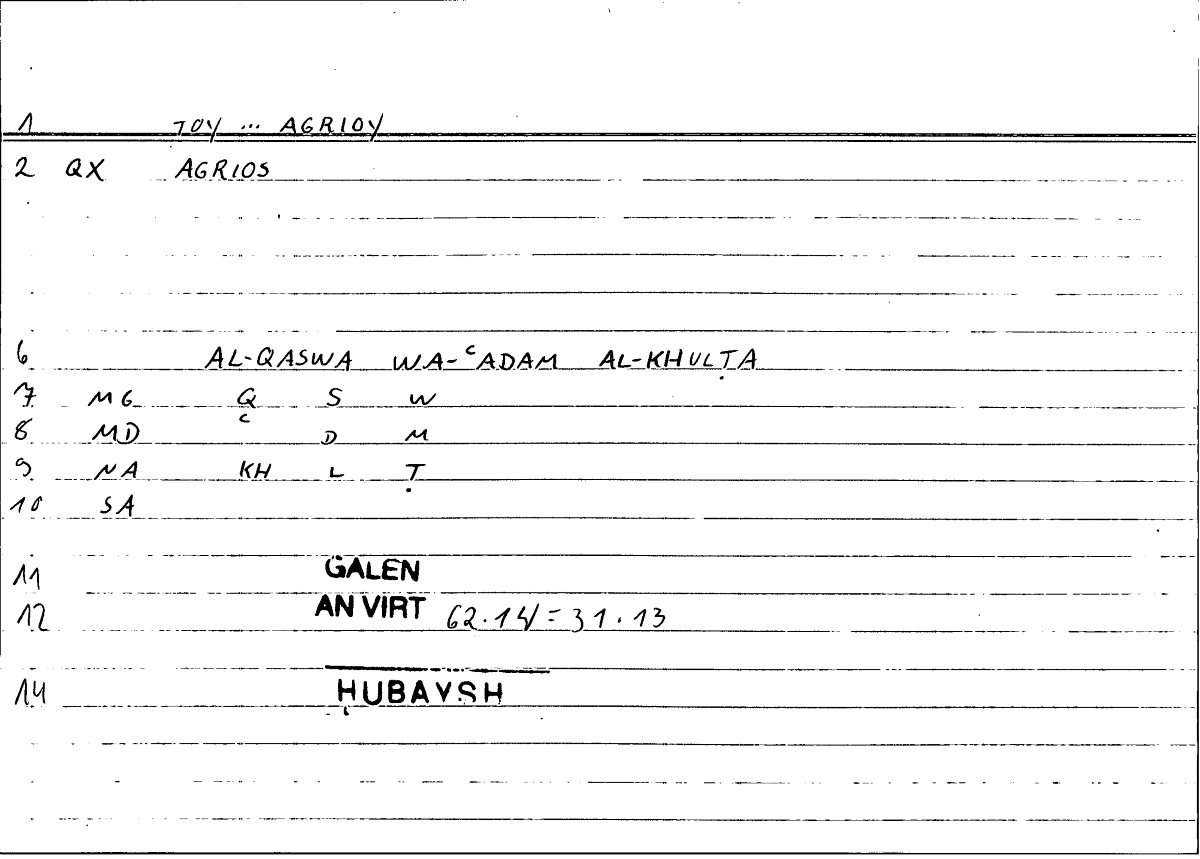 1 TOY ... AGRIOY
2 QX AGRIOS
6 AL-QASWA WA-ᶜADAM AL-KHULṬA
7 MG Q S W
8 MD ᶜ D M
9 NA KH L Ṭ
10 SA
11 GALEN
12 AN VIRT 62.14 = 31.13
14 ḤUBAYSH